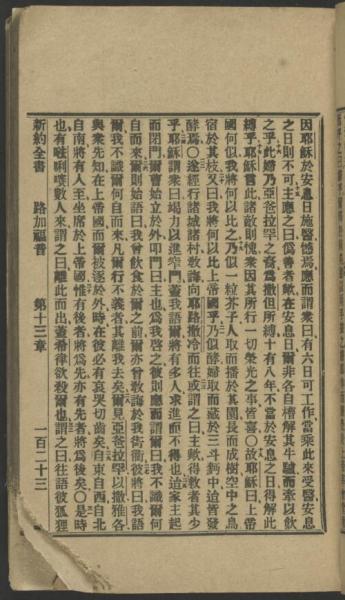 因耶穌於安息日施醫憾焉應而謂衆曰有六日可工作當乘此來受醫安息
之日則不可主應之曰僞善者歟在安息日爾非各自槽解其牛驢而牽以飲
之乎此婦乃亞伯拉罕之裔爲撒但所縛十有八年不當於安息之日得解此
縛乎耶穌言此諸敵則愧衆因其所行一切榮光之事皆喜〇故耶穌曰上帝
國何似我將何以比之乃似一粒芥子人取而播於其園長而成樹空中之鳥
宿於其枝又曰我將何以比上帝國乎乃似酵婦取而藏於三斗麪中迨皆發
酵焉〇遂經行諸城諸村敎誨向耶路撒冷而往或謂之曰主歟得救者其少
乎耶穌謂衆曰竭力以進窄門蓋我語爾將有多人求進而不得也迨家主起
而閉門爾曹始立於外叩門曰主也爲我啓之彼則應而謂爾曰我不識爾何
自而來爾則始語曰我曾飲食於爾之前爾亦曾敎誨於我街衢彼將曰我語
爾我不識爾何自而來凡爾行不義者其離我去矣爾見亞伯拉罕以撒雅各
與衆先知在上帝國而爾被逐於外時在彼必有哀哭切齒矣自東自西自北
自南將有人至坐席於上帝國惟有後者將爲先亦有先者將爲後矣〇是時
也有𠵽唎㘔數人來謂之曰離此而出蓋希律欲殺爾也謂之曰往語彼狐狸
新約全書 路加福音 第十三章 一百二十三